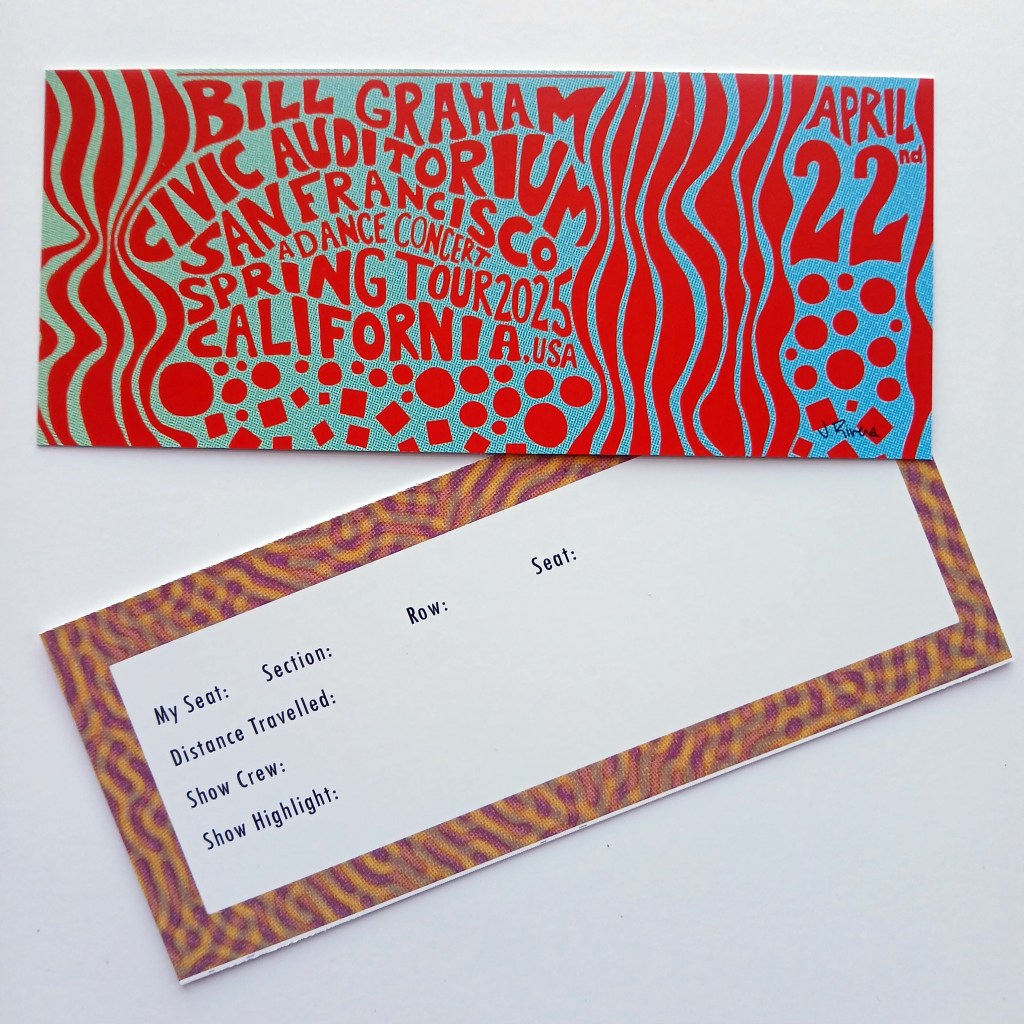 BILL GRAHAM
CIVIC AUDITORIUM
SAN FRANCISCO
A DANCE CONCERT
SPRING TOUR 2025
CALIFORNIA, USA
APRIL
22nd
J. Rivera
My Seat: Section: Row: Seat:
Distance Travelled:
Show Crew:
Show Highlight: